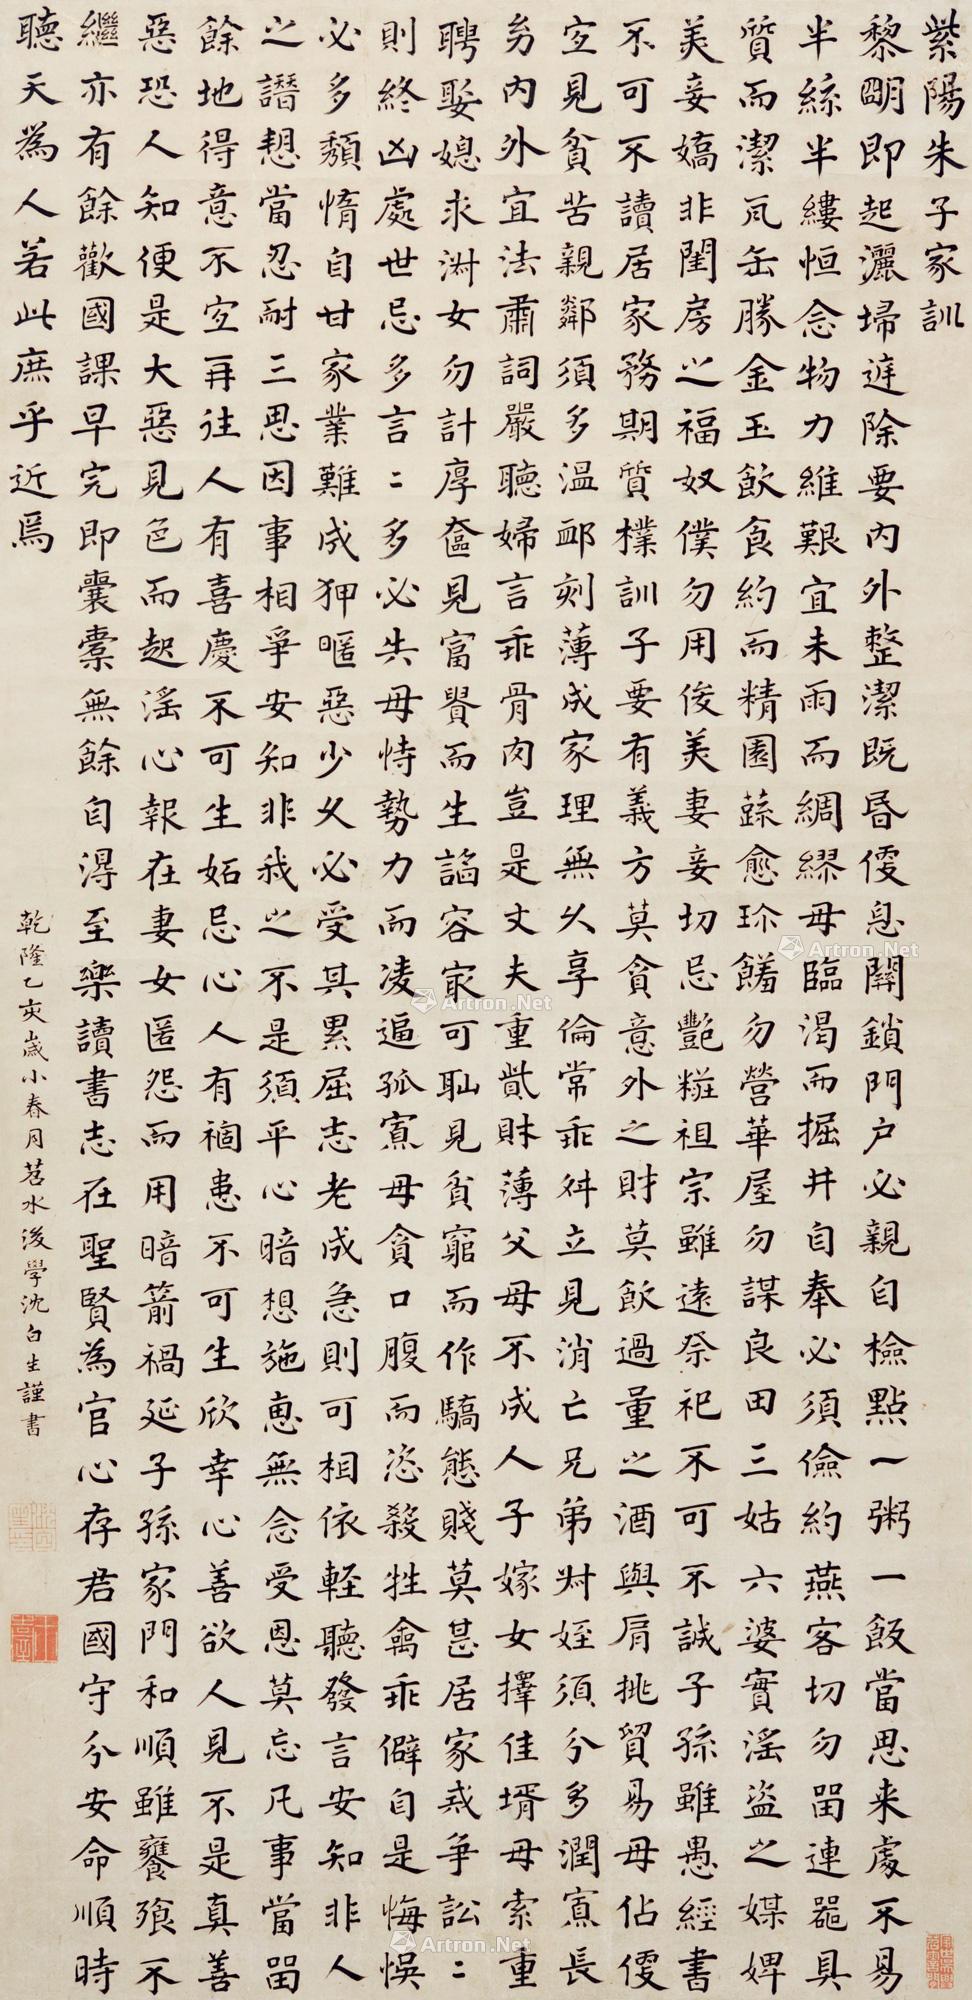 紫陽朱子家訓
黎明即起灑埽庭除要內外整潔既昏便息關鎖門戶必親自檢點一粥一飯當思来處不易
半絲半縷恒念物力維艱宜未雨而綢繆毋臨渴而掘井自奉必須儉約燕客切勿畱連器具
質而潔瓦缶勝金玉飲食約而精園蔬愈珍饈勿營華屋勿謀良田三姑六婆實滛盜之媒婢
美妾嬌非閨房之福奴僕勿用俊美妻妾切忌豔糚祖宗雖遠祭祀不可不誠子孫雖愚經書
不可不讀居家務期質樸訓子要有義方莫貪意外之財莫飲過量之酒與肩挑貿易毋佔便
宐見貧苦親鄰須多温卹刻薄成家理無久享倫常乖舛立見消亡兄弟叔姪須分多潤寡長
㓜內外宜法肅詞嚴聽婦言乖骨肉豈是丈夫重貲財薄父母不成人子嫁女擇佳壻毋索重
聘娶媳求淑女勿計厚奩見富貴而生謟容㝡可恥見貧窮而作驕態賤莫甚居家戒爭訟〻
則終凶處世忌多言〻多必失毋恃勢力而凌逼孤寡毋貪口腹而恣殺牲禽乖僻自是悔悞
必多頹惰自甘家業難成狎暱惡少久必受其累屈志老成急則可相依輕聽發言安知非人
之譖愬當忍耐三思因事相爭安知非我之不是須平心暗想施惠無念受恩莫忘凡事當畱
餘地得意不宐再往人有喜慶不可生妬忌心人有禍患不可生欣幸心善欲人見不是真善
惡恐人知便是大惡見色而起滛心報在妻女匿怨而用暗箭禍延子孫家門和順雖饔飱不
繼亦有餘歡國課早完即囊橐無餘自得至樂讀書志在聖賢為官心存君國守分安命順時
聽天為人若此庶乎近焉
乾隆乙亥歲小春月苕水後學沈白生謹書
Artron.Net
Artron.Net
Artron.Net